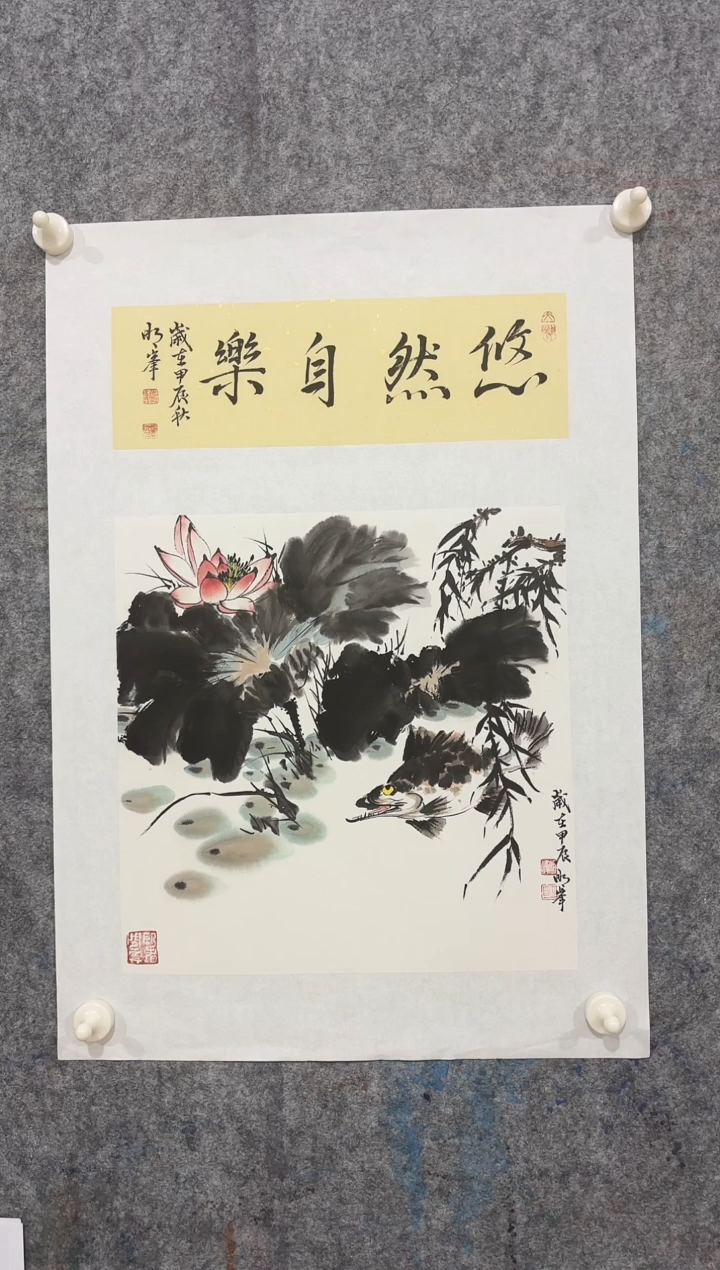 悠然自樂
歲在甲辰秋
明峯
歲在甲辰
明峯